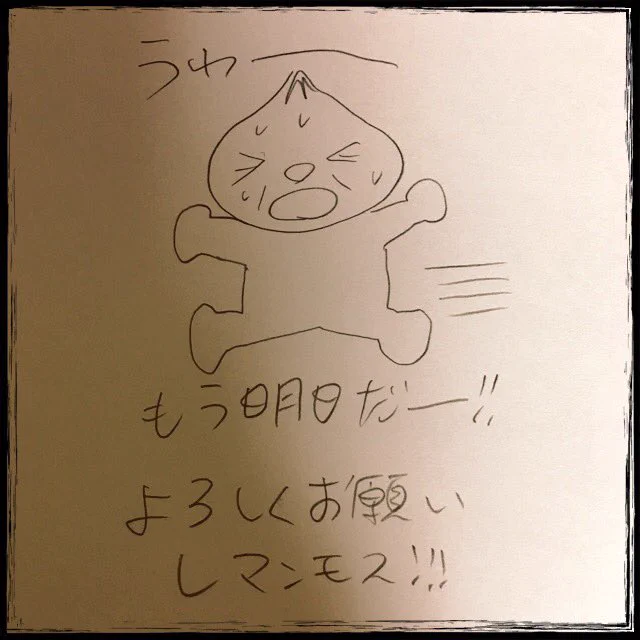 うわー
もう明日だー!!
よろしくお願い
しマンモス!!!